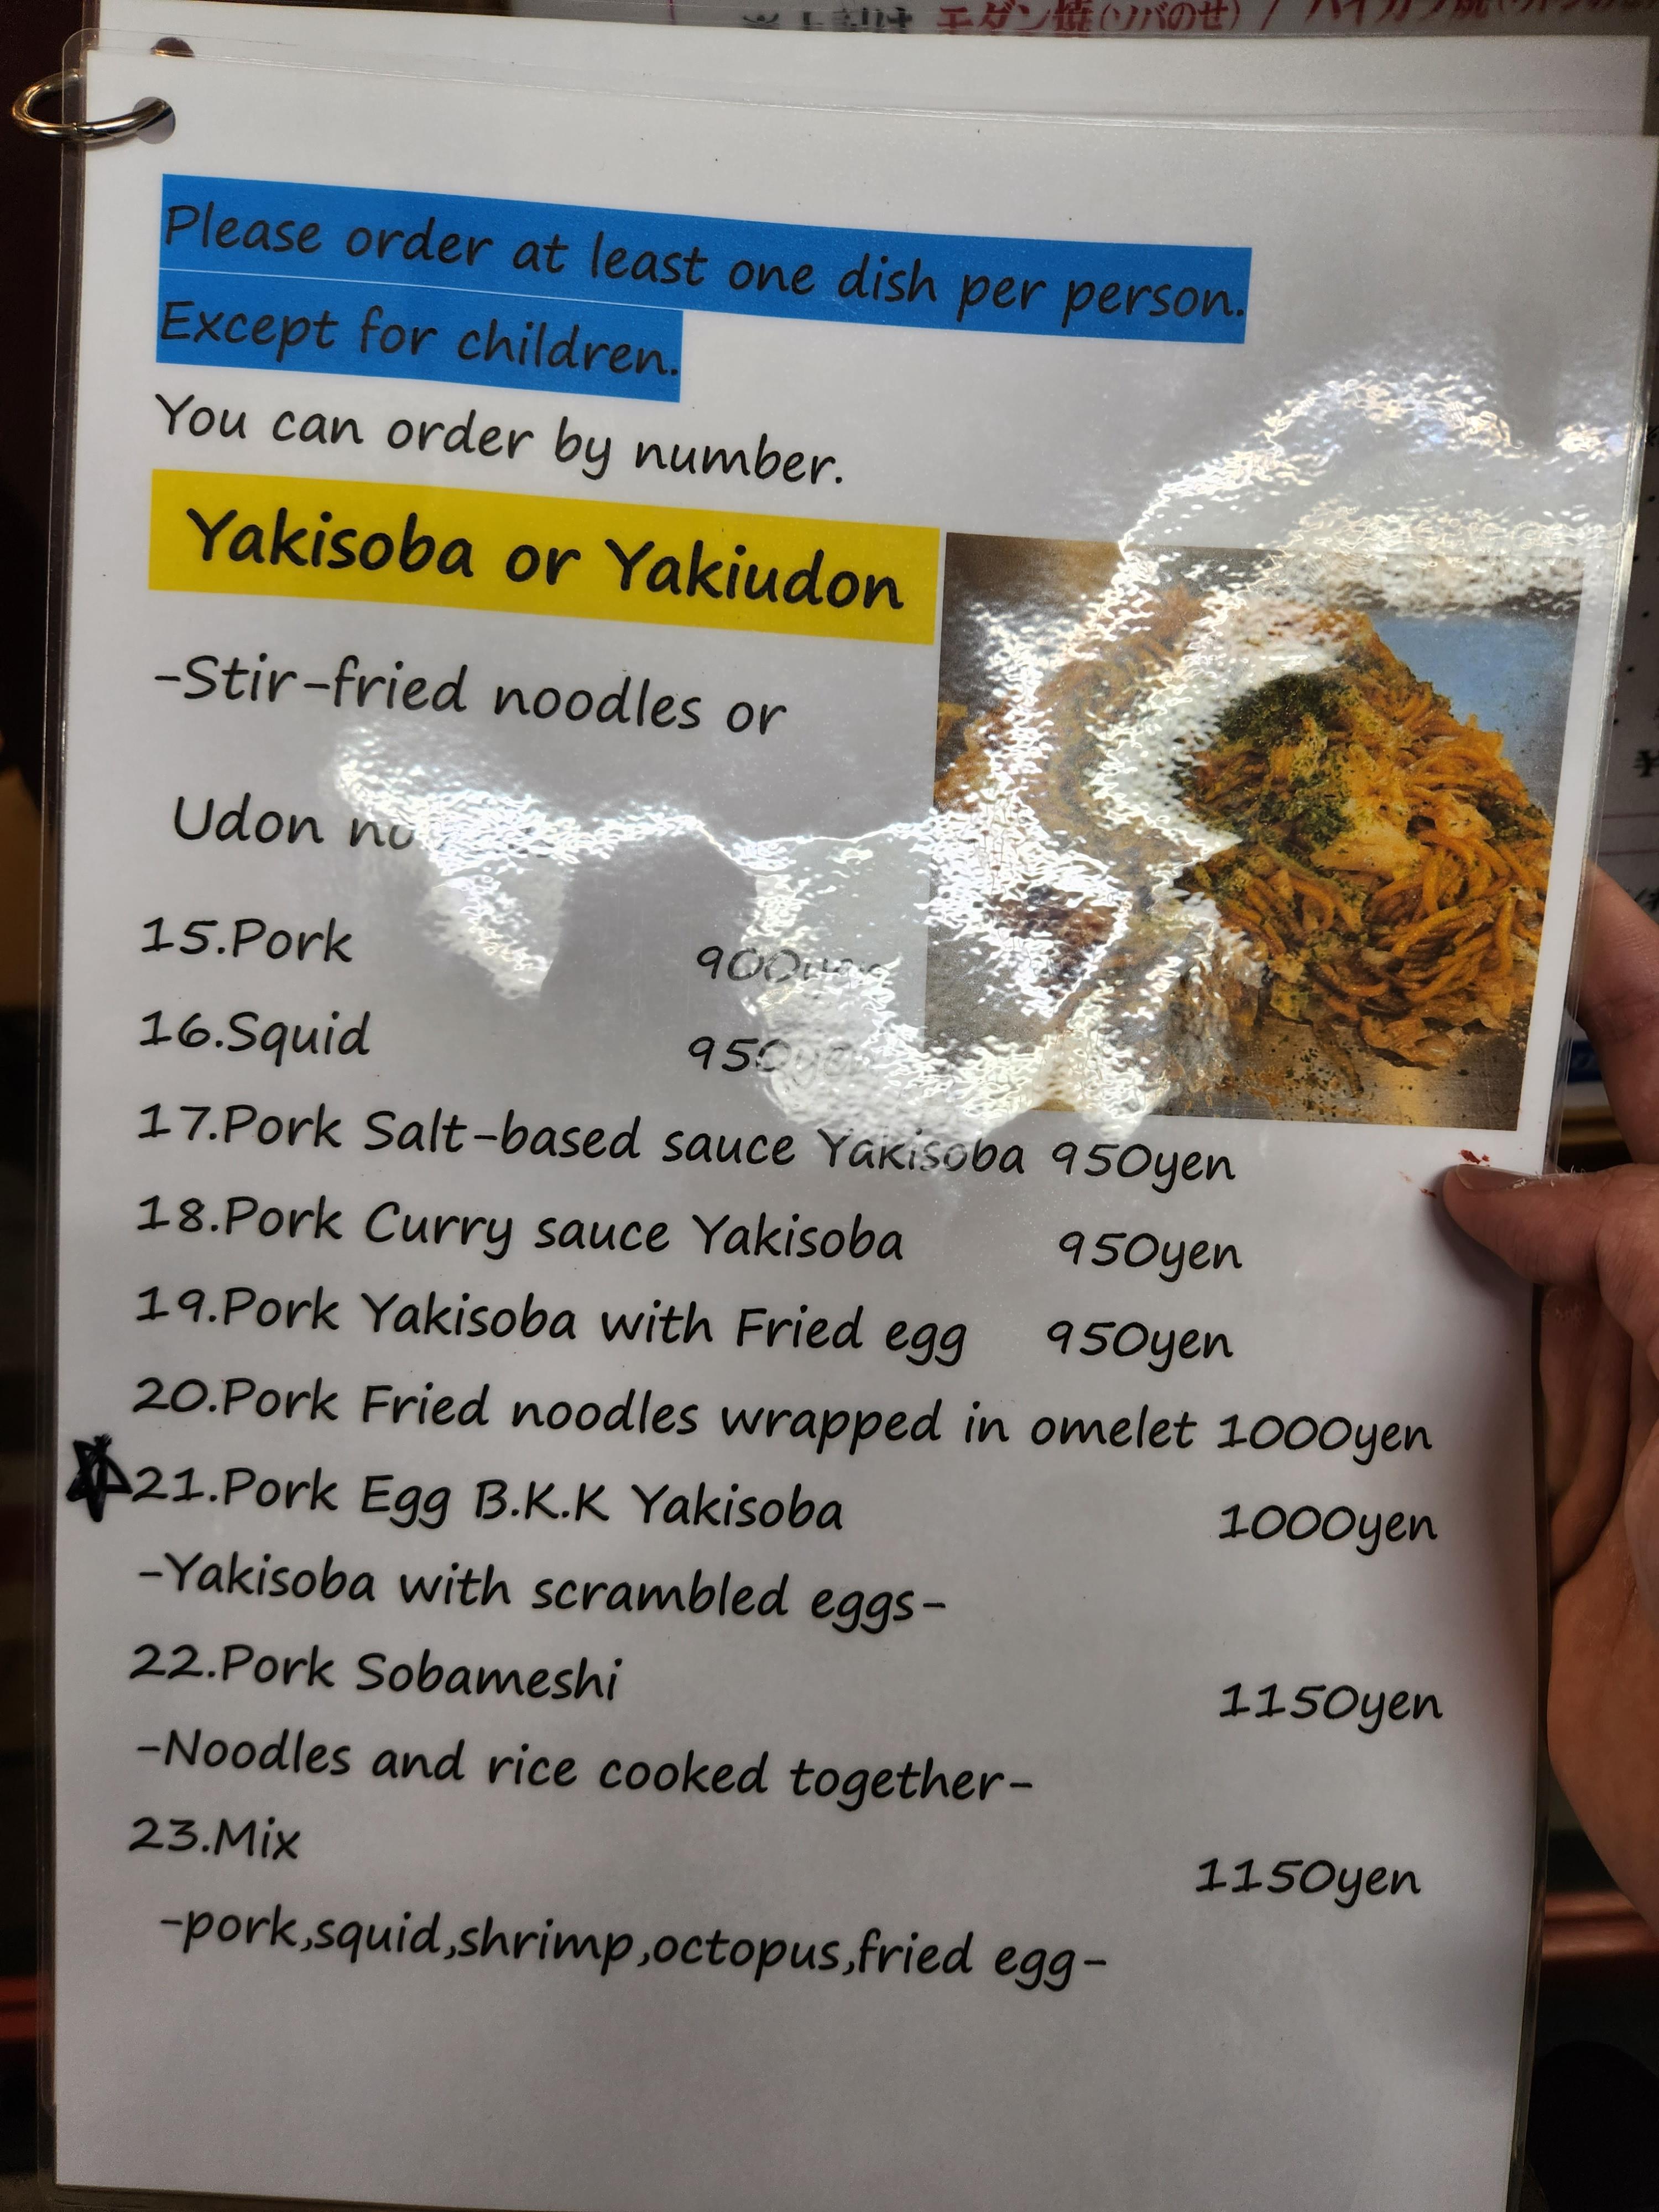 モダン焼(ソバのせ) /
Please order at least one dish per person.
Except for children.
You can order by number.
Yakisoba or Yakiudon
-Stir-fried noodles or
Udon
15.Pork 900yen
16.Squid 950yen
17.Pork Salt-based sauce Yakisoba 950yen
18.Pork Curry sauce Yakisoba 950yen
19.Pork Yakisoba with Fried egg 950yen
20.Pork Fried noodles wrapped in omelet 1000yen
21.Pork Egg B.K.K Yakisoba 1000yen
-Yakisoba with scrambled eggs-
22.Pork Sobameshi 1150yen
-Noodles and rice cooked together-
23.Mix 1150yen
-pork,squid,shrimp,octopus,fried egg-